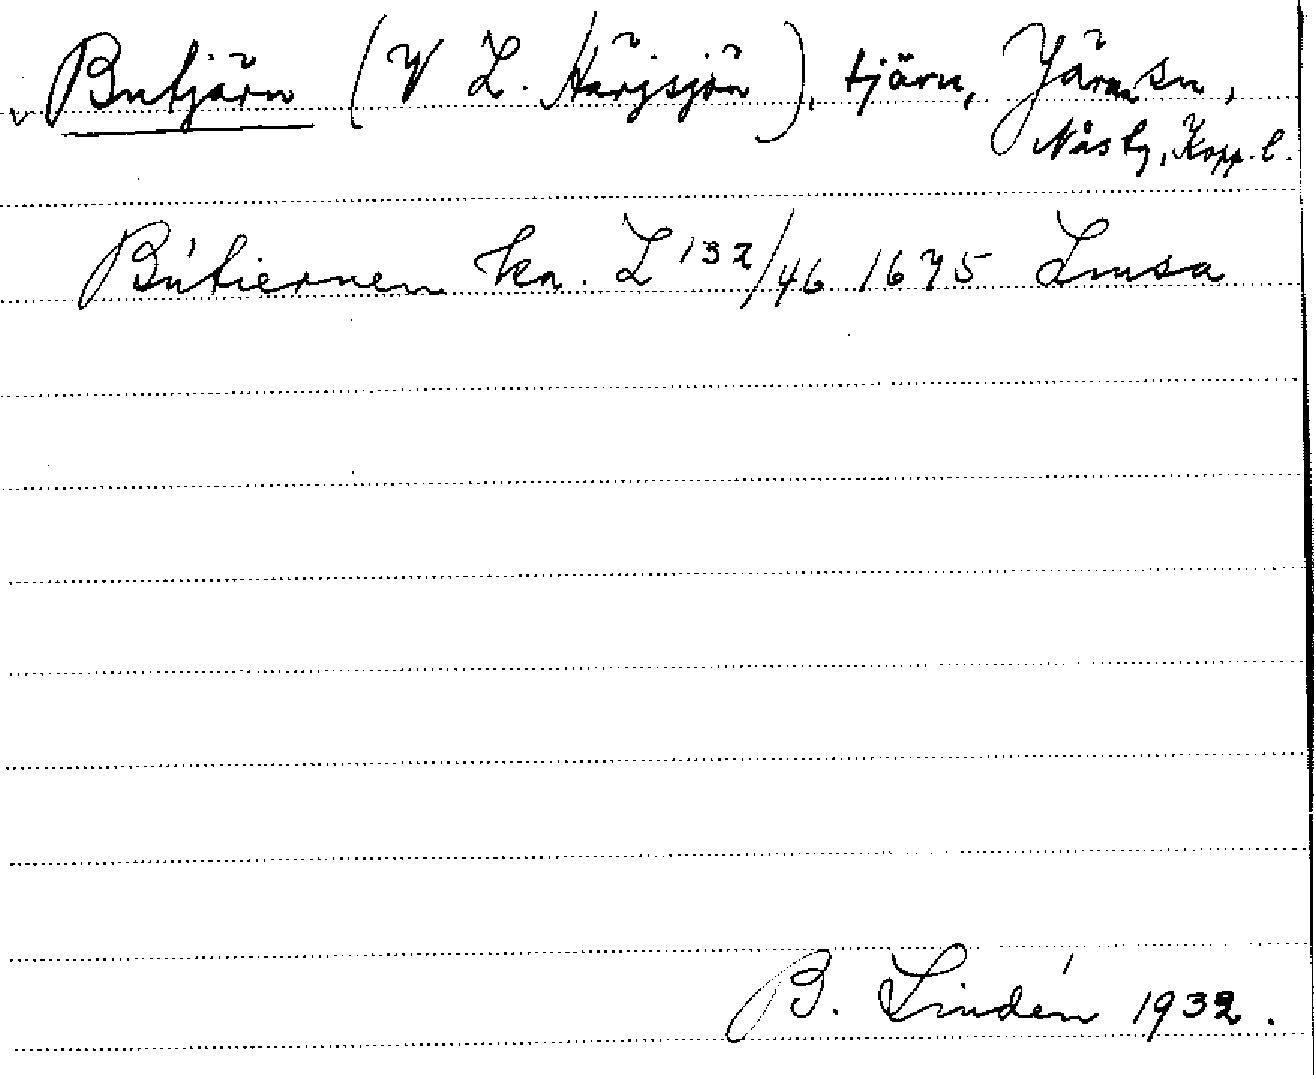 v Butjärn (V L. Härjsjön), tjärn, Järna sn,
Nås tg, Kopp. l.
Bútiernen ka. L 132/46 1675 Limsa
B. Lindén 1932.